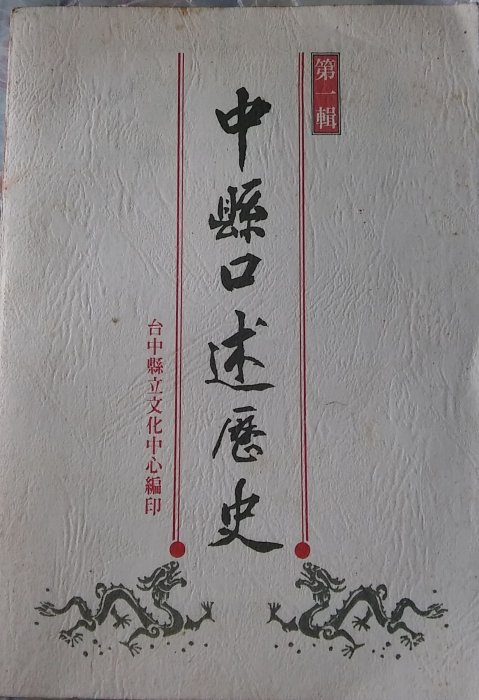 第一輯
中縣口述歷史
台中縣立文化中心編印